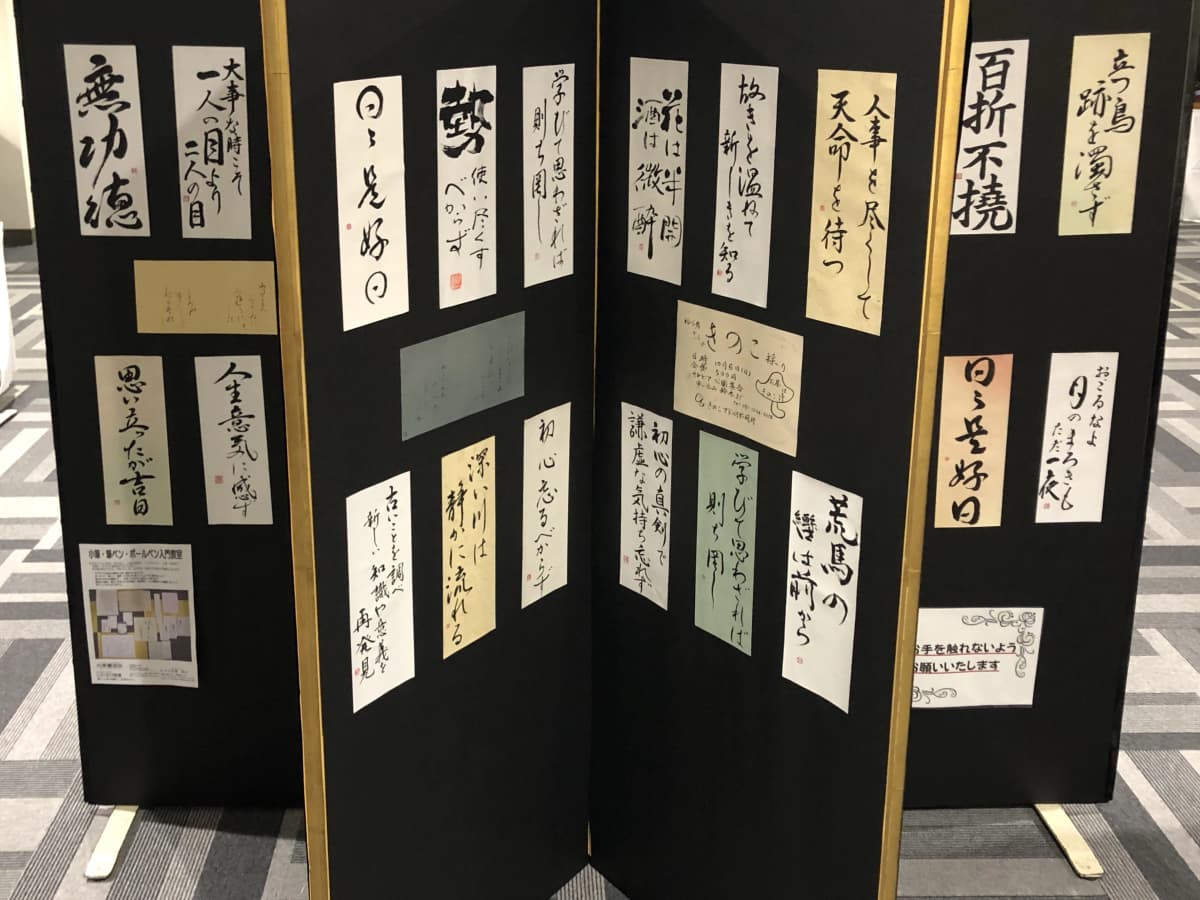 無功徳
大事な時こそ
一人の目より
二人の目
思い立ったが吉日
人生意気に感ず
小筆・筆ペン・ボールペン入門教室
日々是好日
勢
使い尽くす
べからず
学びて思わざれば
則ち罔し
古いことを調べ
新しい知識や意義を
再発見
深い川は
静かに流れる
初心忘るべからず
花は半開
酒は微酔
故きを温ねて
新しきを知る
人事を尽くして
天命を待つ
きのこ採り
日時
会費 500円
初心の真剣で
謙虚な気持ち忘れず
学びて思わざれば
則ち罔し
荒馬の
轡は前から
百折不撓
立つ鳥
跡を濁さず
日々是好日
おごるなよ
月のまろさも
ただ一夜
お手を触れないよう
お願いいたします